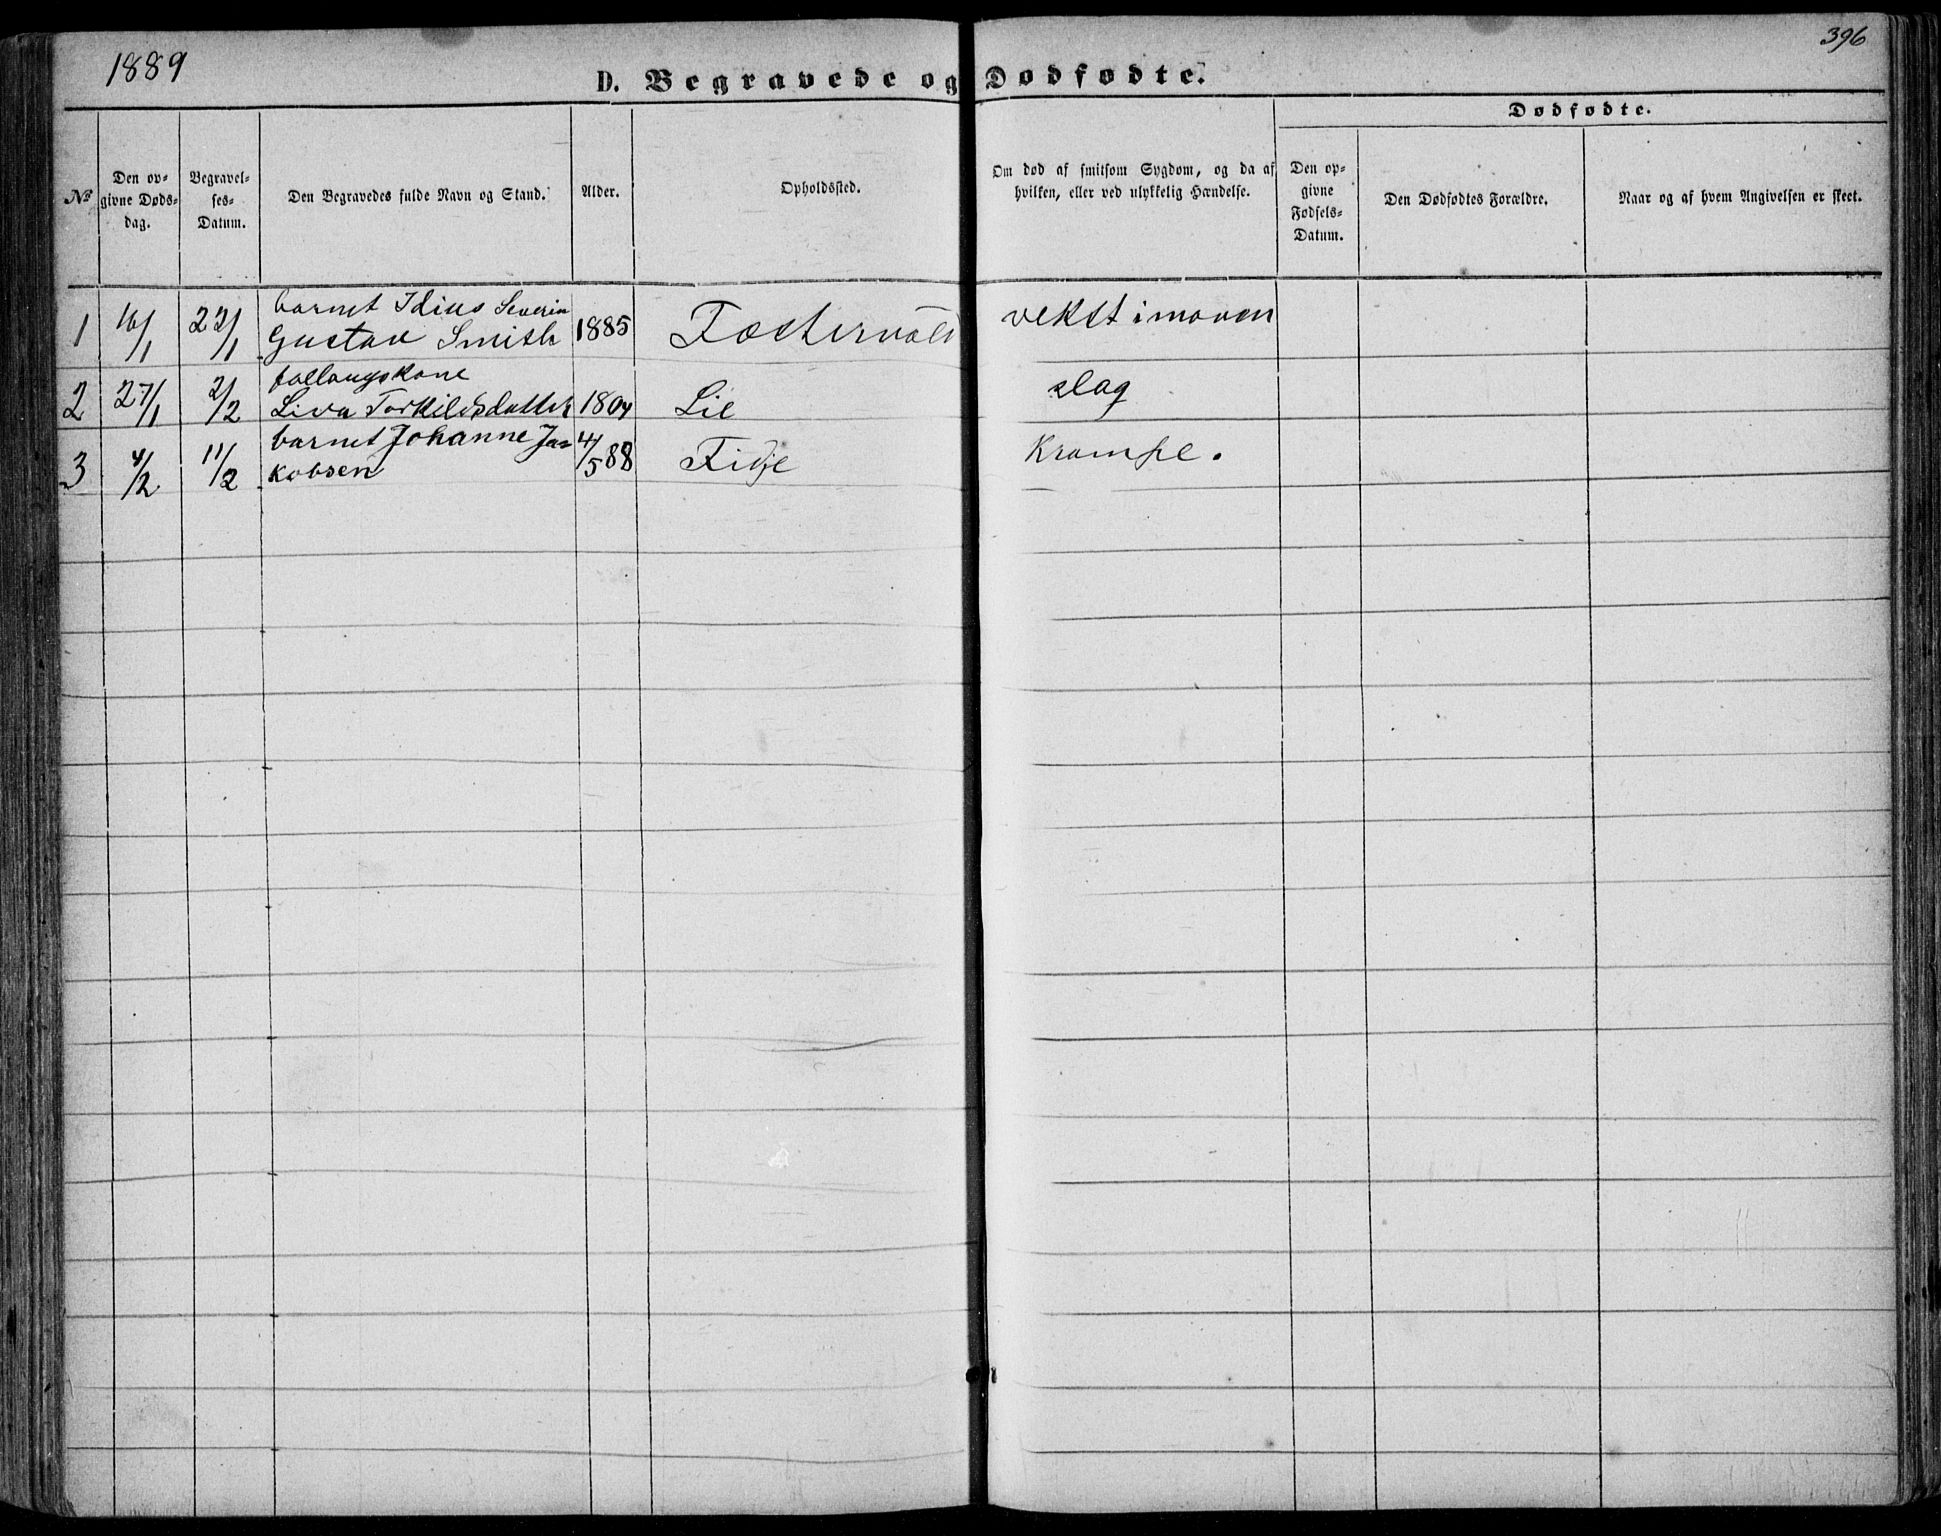 1889
396
D. Begravede og Dødfødte.
Dødfødte.
No
Den opgivne Dødsdag.
Begravelses-Datum.
Den Begravedes fulde Navn og Stand.
Alder.
Opholdssted.
Om død af smitsom Sygdom, og da af hvilken, eller ved ulykkelig Hændelse.
Den opgivne Fødsels-Datum.
Den Dødfødtes Forældre.
Naar og af hvem Angivelsen er skeet.
1 16/1 22/1 barnet Idius Severin
Gustav Smith 1885 vekst i maven
2 27/1 2/2
Liva Torkildsdatter 1804 Lie slag
3 4/2 11/2 barnet Johanne Ja=
kobsen 4/5 88 Fidje Krampe.